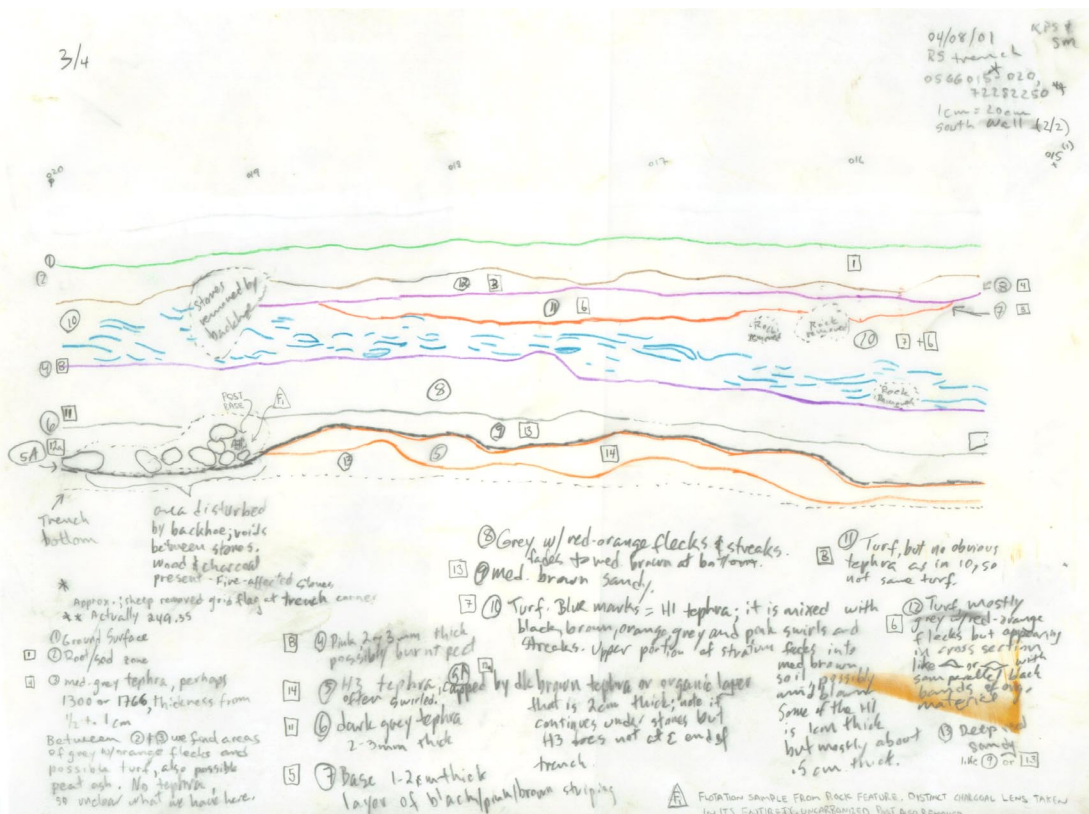 3/4
04/08/01
RS trench
0566015*-020,
72282250**
1cm = 20cm
south wall (2/2)
KPS &
SM
020
019
018
017
016
015
1
2
12
3
11
6
1
2
4
7
5
10
Stones
removed by
backhoe
Rock
Removed
Rock
removed
10
7 + 6
9
8
8
Rock
Removed
6
11
5A
12a
POST
BASE
F1
9
13
13
5
14
Trench
bottom
area disturbed
by backhoe; voids
between stones.
Wood & charcoal
present - Fire-affected stones
* Approx.; sheep removed grid flag at trench corner
** Actually 249.55
① Ground Surface
1 ② Root/sod zone
4 ③ med-grey tephra, perhaps
1300 or 1766, thickness from
1/2 to 1 cm
Between ② + ③ we find areas
of grey w/orange flecks and
possible turf, also possible
peat ash. No tephra,
so unclear what we have here.
8 ④ Pink, 2-3mm thick
possibly burnt peat
14 ⑤ H3 tephra, capped by dk brown tephra or organic layer
often swirled.
5A that is 2cm thick; note it
continues under stones but
H3 does not at E end of
trench
11 ⑥ dark grey tephra
2-3mm thick
5 ⑦ Base 1-2cm thick
layer of black/pink/brown striping
⑧ Grey w/ red-orange flecks & streaks.
fades to med brown at bottom.
13 ⑨ med. brown sandy.
7 ⑩ Turf. Blue marks = H1 tephra; it is mixed with
black, brown, orange, grey and pink swirls and
streaks. Upper portion of stratum fades into
med brown
soil possibly
windblown
Some of the H1
is 1cm thick
but mostly about
.5 cm thick.
8 ⑪ Turf, but no obvious
tephra as in 10, so
not same turf.
6 ⑫ Turf, mostly
grey w/red-orange
flecks but appearing
in cross section
like or with
black
bands of org.
material
⑬ Deep red
sandy
like ⑨ or 13
F1 FLOTATION SAMPLE FROM ROCK FEATURE. DISTINCT CHARCOAL LENS TAKEN
IN ITS ENTIRETY. UNCARBONIZED POST ALSO REMOVED